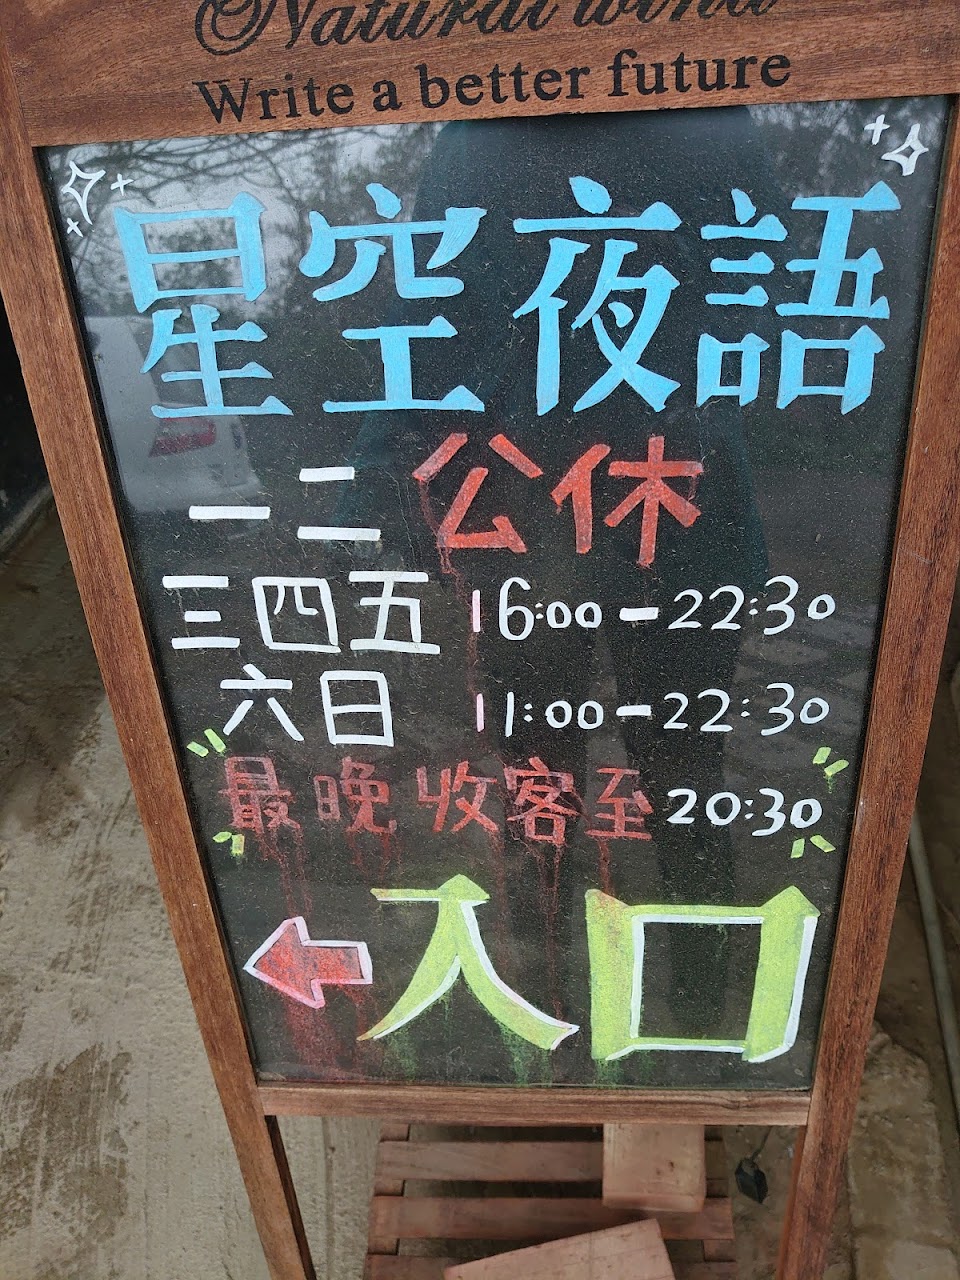 Natural wind
Write a better future
星空夜語
一二公休
三四五 16:00-22:30
六日 11:00-22:30
最晚收客至20:30
入口